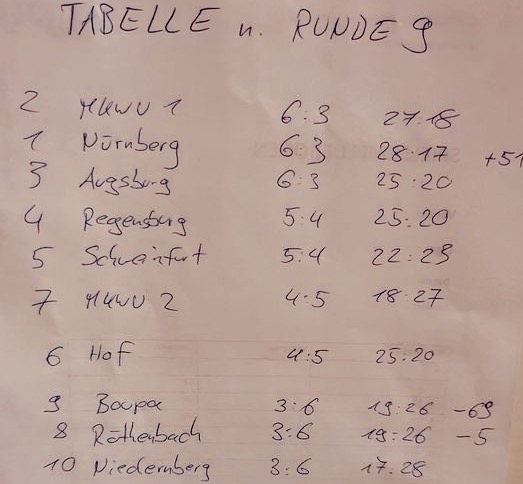 TABELLE n. RUNDE 9
2 MKWU 1 6:3 27:18
1 Nürnberg 6:3 28:17 +51
3 Augsburg 6:3 25:20
4 Regensburg 5:4 25:20
5 Schweinfurt 5:4 22:23
7 MKWU 2 4:5 18:27
6 Hof 4:5 25:20
9 Boupa 3:6 19:26 -69
8 Röthenbach 3:6 19:26 -5
10 Niedernberg 3:6 17:28